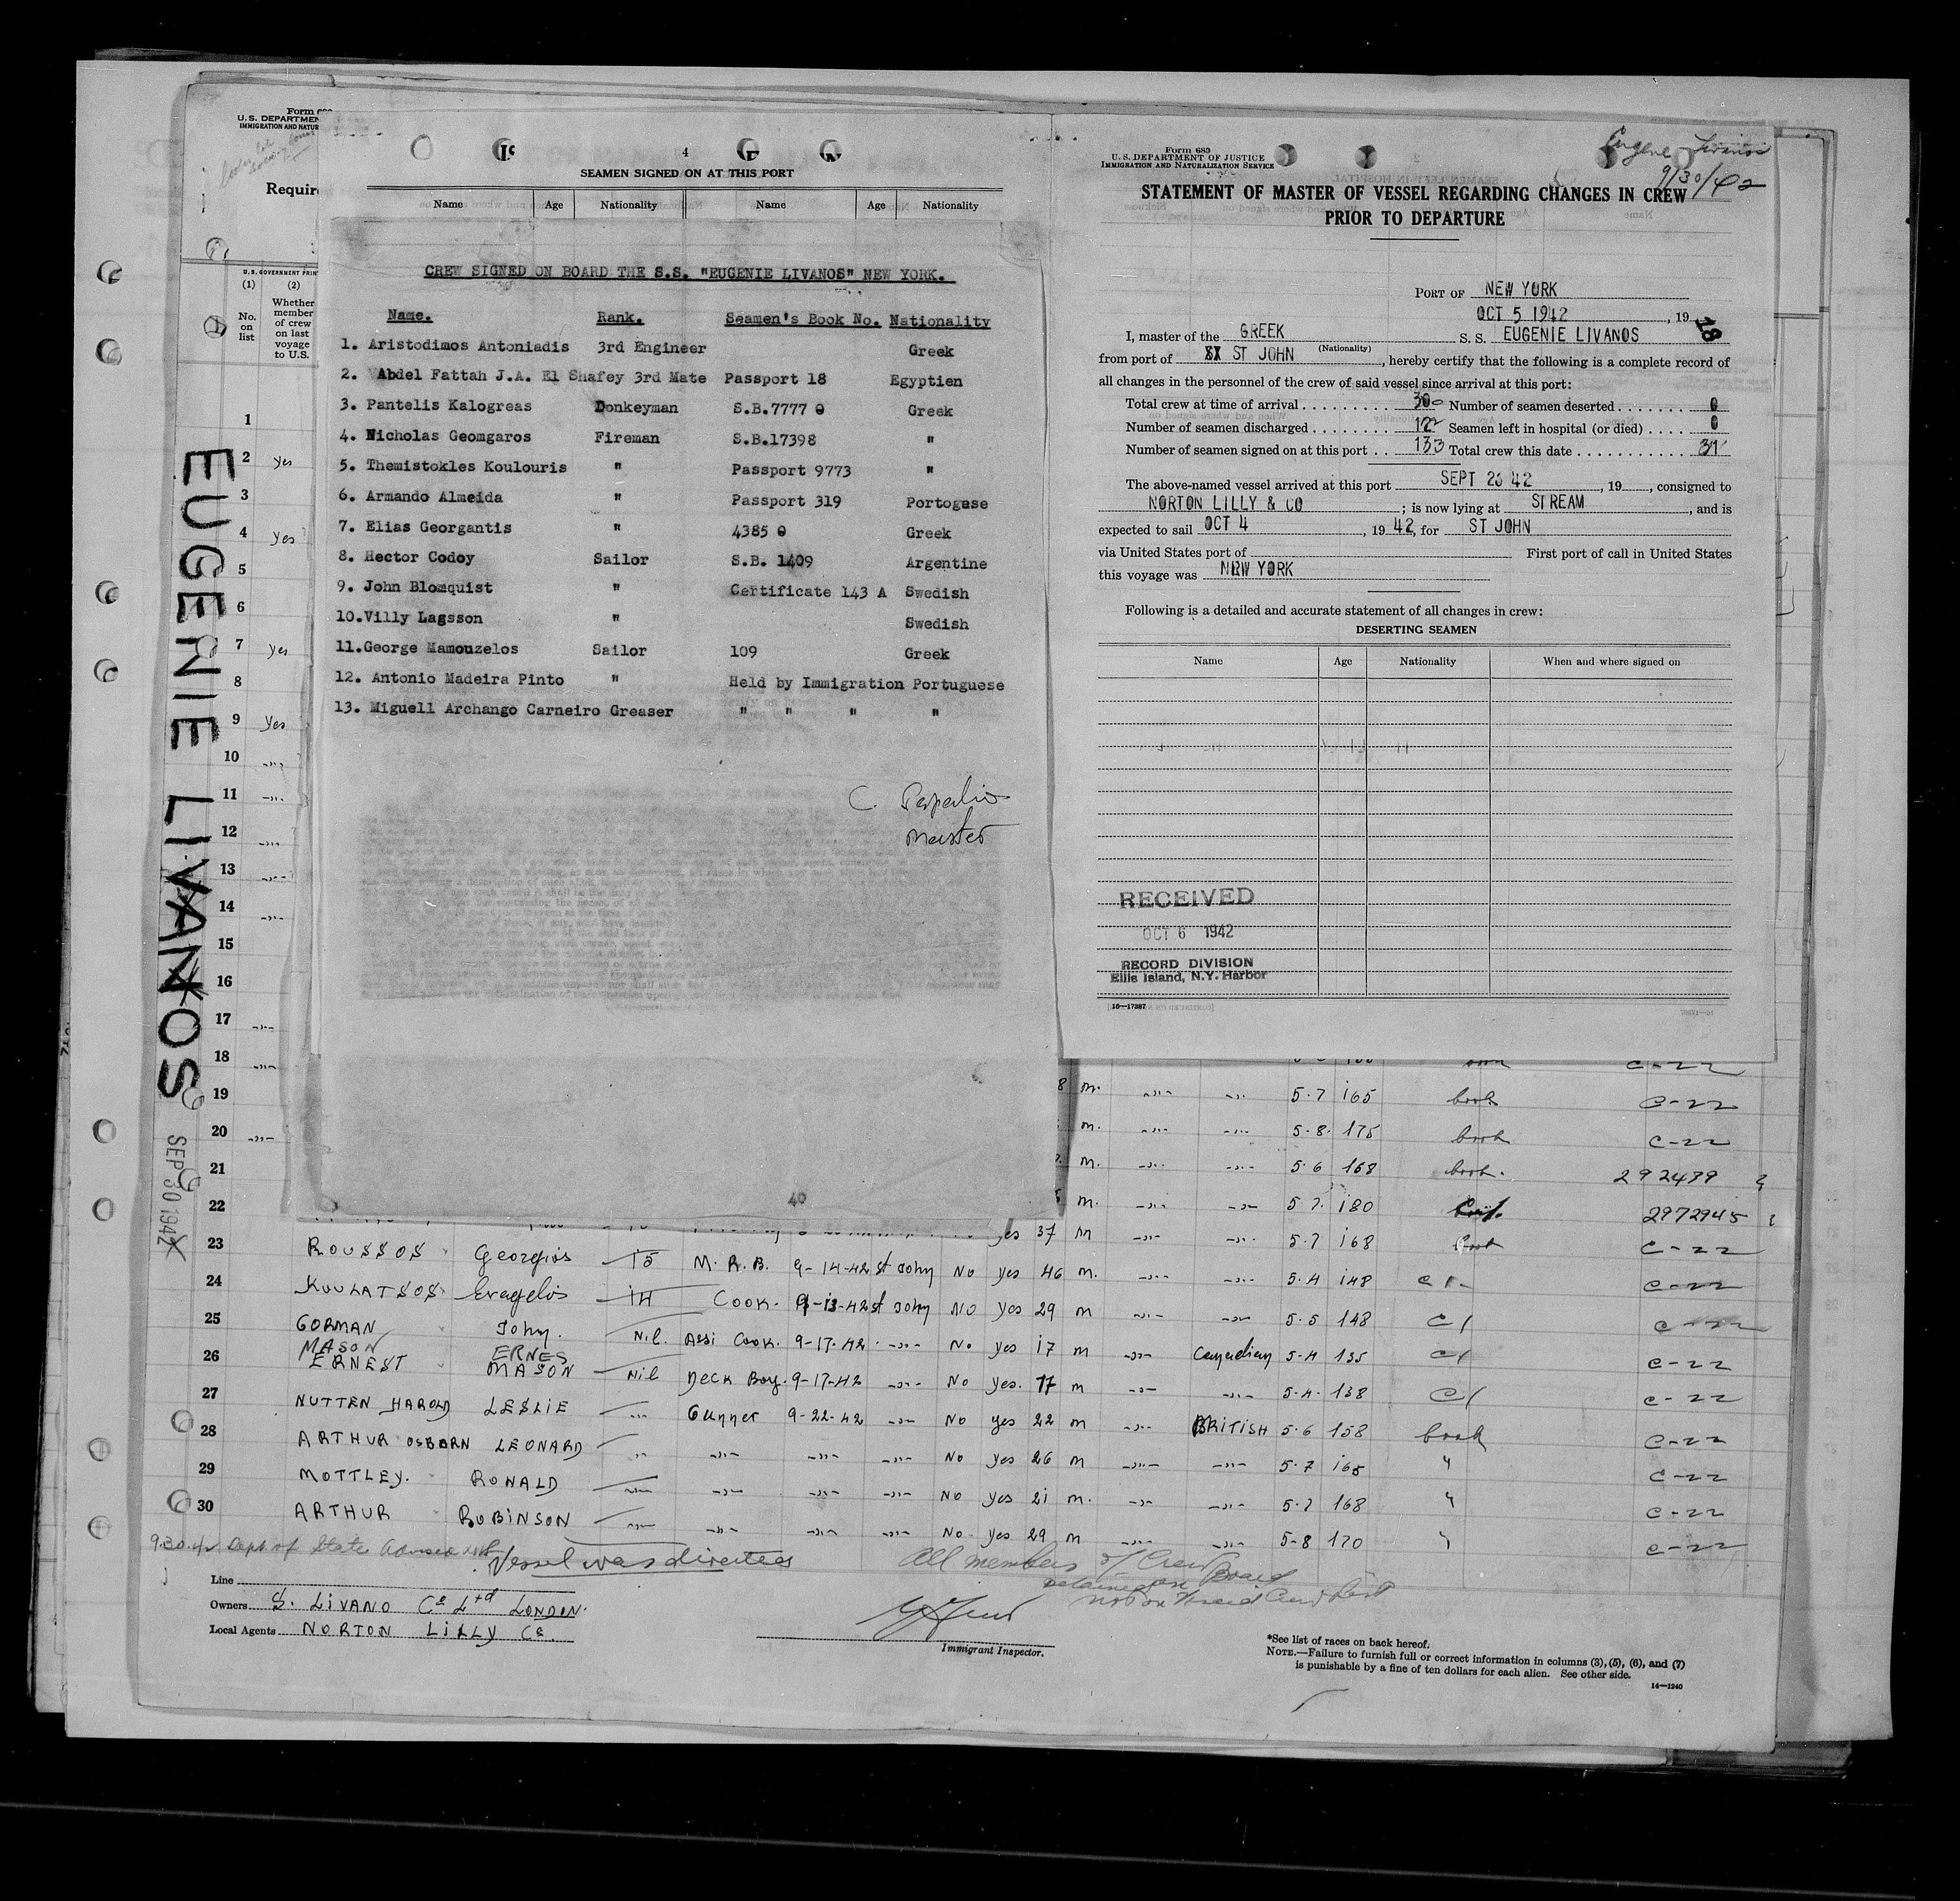 Form
U.S. DEPARTMEN
IMMIGRATION AND NATUR
Requir
U.S. GOVERNMENT PRIN
(1) (2)
No. on list
Whether member of crew on last voyage to U.S.
1
2 yes
3
4 yes
5
6
7 yes
8
9 yes
10 -„-
11 -„-
12 -„-
13 -„-
14 -„-
15
16
17 -„-
18 -„-
19
20 -„-
21
22
EUGENIE LIVANOS
SEP 30 1942
4
SEAMEN SIGNED ON AT THIS PORT
Name Age Nationality Name Age Nationality
CREW SIGNED ON BOARD THE S.S. "EUGENIE LIVANOS" NEW YORK.
Name. Rank. Seamen's Book No. Nationality
1. Aristodimos Antoniadis 3rd Engineer Greek
2. Abdel Fattah J.A. El Shafey 3rd Mate Passport 18 Egyptien
3. Pantelis Kalogreas Donkeyman S.B.7777 0 Greek
4. Nicholas Geomgaros Fireman S.B.17398 "
5. Themistokles Koulouris " Passport 9773 "
6. Armando Almeida " Passport 319 Portogese
7. Elias Georgantis " 4385 0 Greek
8. Hector Codoy Sailor S.B. 1409 Argentine
9. John Blomquist " Certificate 143 A Swedish
10.Villy Lagsson " Swedish
11.George Mamouzelos Sailor 109 Greek
12. Antonio Madeira Pinto " Held by Immigration Portuguese
13. Miguell Archango Carneiro Greaser " " " "
C.
Master
40
Form 689
U.S. DEPARTMENT OF JUSTICE
IMMIGRATION AND NATURALIZATION SERVICE
Eugene Livanos
9/30/42
STATEMENT OF MASTER OF VESSEL REGARDING CHANGES IN CREW
PRIOR TO DEPARTURE
PORT OF NEW YORK
OCT 5 1942, 19
18
I, master of the GREEK S. S. EUGENIE LIVANOS
(Nationality)
from port of ST JOHN, hereby certify that the following is a complete record of
all changes in the personnel of the crew of said vessel since arrival at this port:
Total crew at time of arrival 30 Number of seamen deserted 0
Number of seamen discharged 12 Seamen left in hospital (or died) 0
Number of seamen signed on at this port 13 Total crew this date 31
The above-named vessel arrived at this port SEPT 23 42, 19, consigned to
NORTON LILLY & CO; is now lying at STREAM, and is
expected to sail OCT 4, 1942, for ST JOHN
via United States port of First port of call in United States
this voyage was NEW YORK
Following is a detailed and accurate statement of all changes in crew:
DESERTING SEAMEN
Name Age Nationality When and where signed on
RECEIVED
OCT 6 1942
RECORD DIVISION
Ellis Island, N.Y. Harbor
16—17387
book c-22
8 m. -„- -„- 5-7 165 book c-22
m. -„- -„- 5-8 175 book c-22
m. -„- -„- 5-6 168 book. 292439
m. -„- -„- 5-7 180 2972945
yes 37 m -„- -„- 5-7 168 book c-22
23 ROUSSOS Georgios 15 M.R.B. 9-14-42 st John No yes 46 m. -„- -„- 5-4 148 c1- c-22
24 KOULATSOS Evagelos 14 Cook. 9-13-42 st John No yes 29 m -„- -„- 5-5 148 c1 c-22
25 GORMAN John. Nil. Assi Cook. 9-17-42 -„- No yes 17 m -„- Canadian 5-4 135 c1 c-22
MASON ERNES
26 ERNEST MASON Nil Deck Boy. 9-17-42 -„- No yes. 17 m -„- -„- 5-4 138 c1 c-22
27 NUTTEN HAROLD LESLIE -„- Gunner 9-22-42 -„- No yes 22 m -„- BRITISH 5-6 158 book c-22
28 ARTHUR OSBORN LEONARD -„- -„- -„- -„- No yes 26 m -„- -„- 5-7 165 " c-22
29 MOTTLEY. RONALD -„- -„- -„- -„- No yes 21 m. -„- -„- 5-7 168 " c-22
30 ARTHUR ROBINSON -„- -„- -„- -„- No yes 29 m -„- -„- 5-8 170 " c-22
9.30.42 Dept of State Vessel was directed All members of Crew
Detained on Board
Line
Owners S. LIVANO Co Ltd LONDON.
Local Agents NORTON LILLY Co.
Immigrant Inspector.
*See list of races on back hereof.
NOTE.—Failure to furnish full or correct information in columns (3), (5), (6), and (7)
is punishable by a fine of ten dollars for each alien. See other side.
14—1240